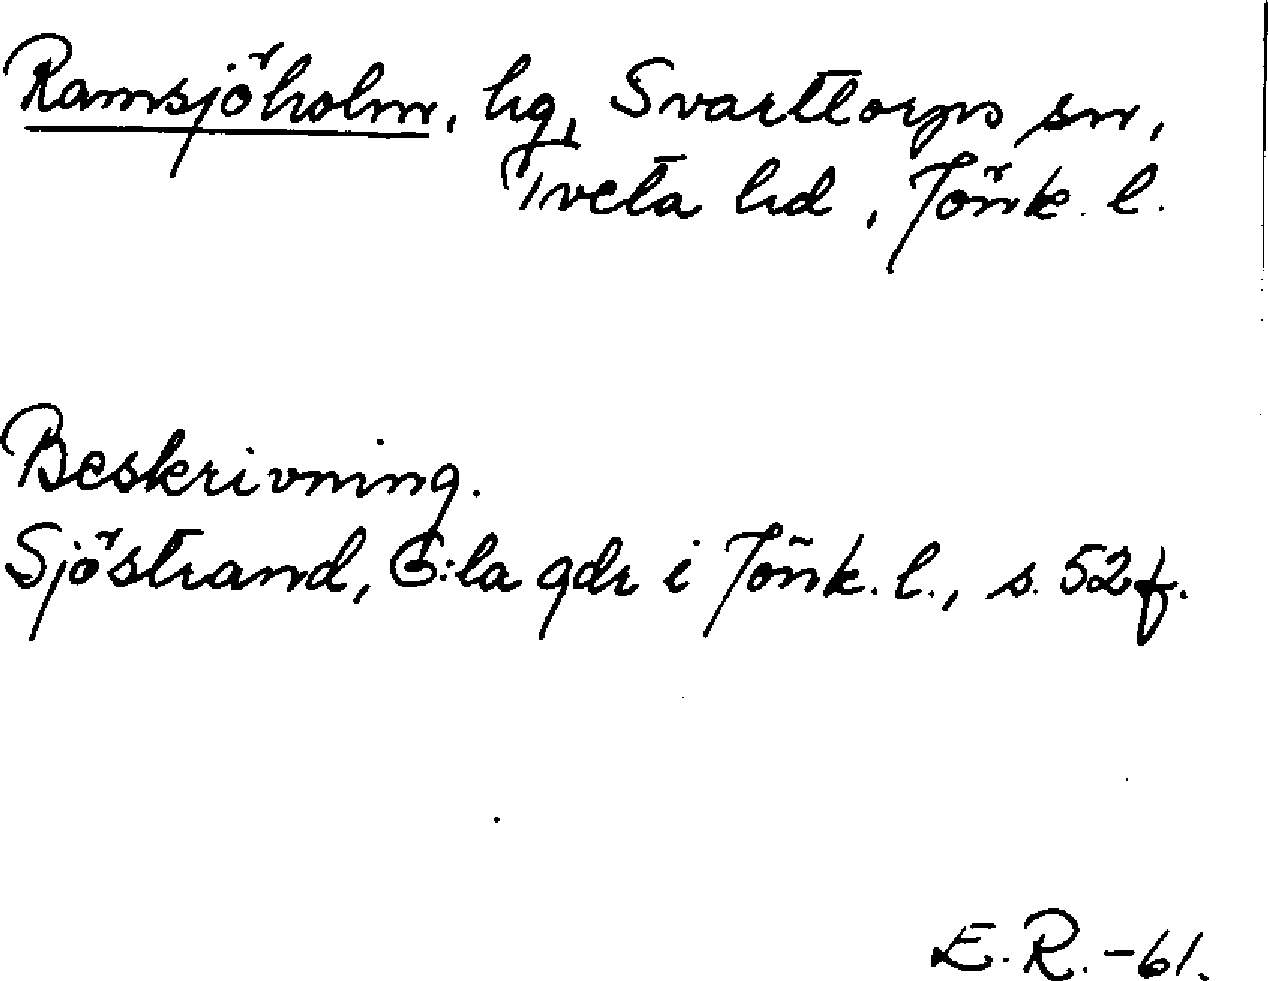 Ramsjöholm, hg, Svarttorps sn,
Tveta hd, Jönk. l.
Beskrivning.
Sjöstrand, G:la gdr i Jönk. l., s. 52 f.
E. R. -61.